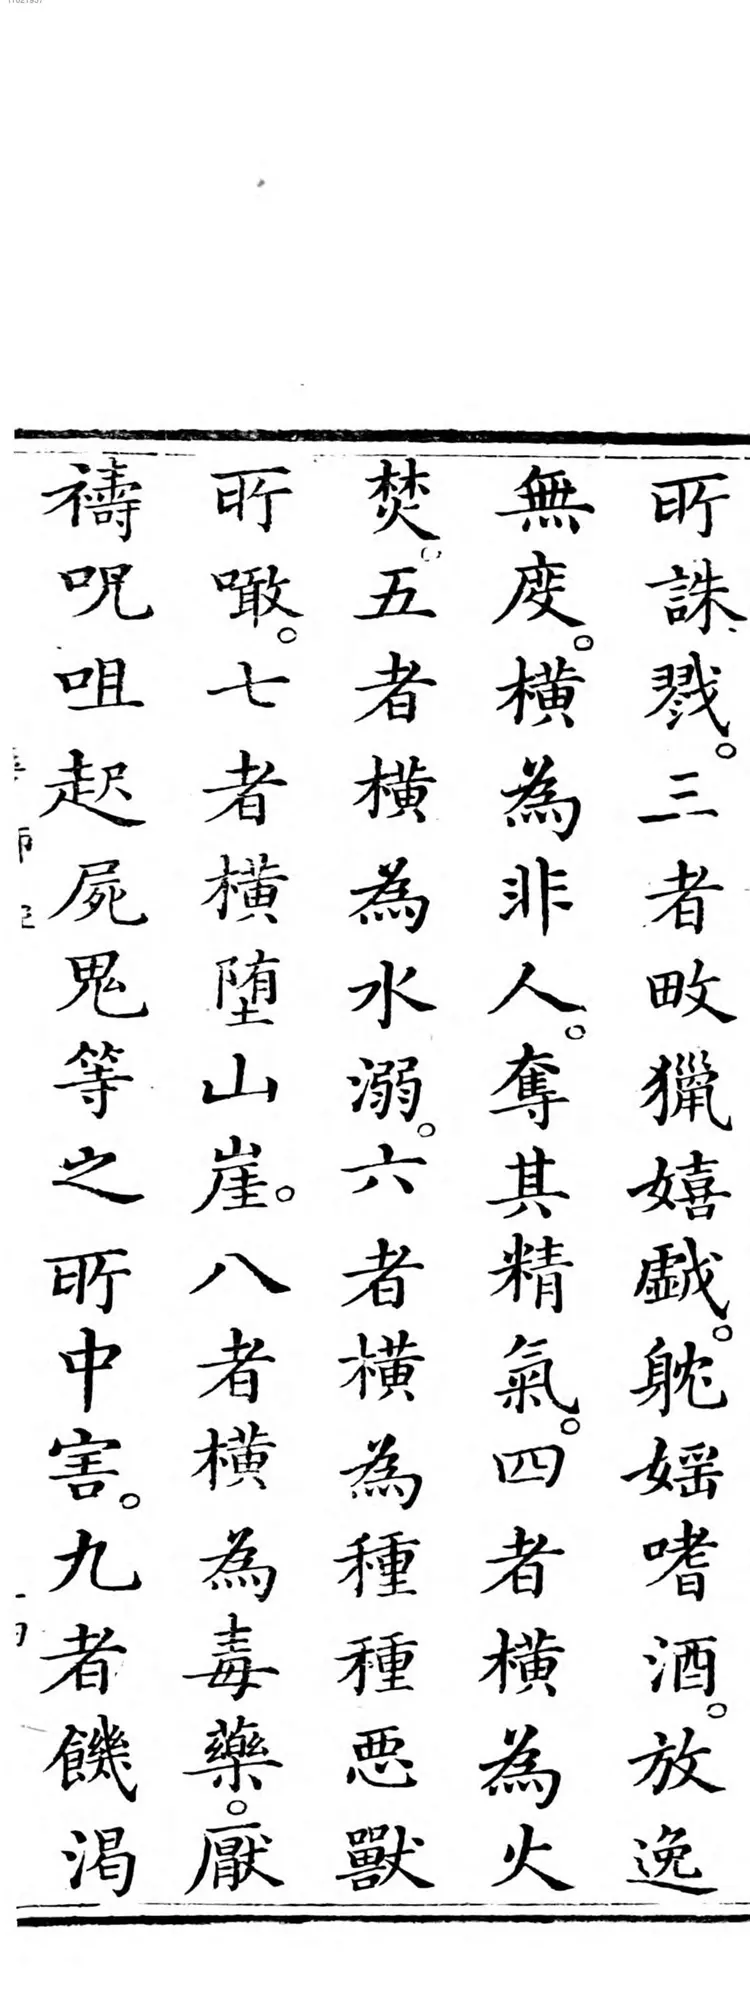 所誅戮。三者畋獵嬉戱。躭婬嗜酒。放逸
無度。橫為非人。奪其精氣。四者橫為火
焚。五者橫為水溺。六者橫為種種惡獸
所噉。七者橫墮山崖。八者橫為毒藥。厭
禱呪咀起屍鬼等之所中害。九者饑渴